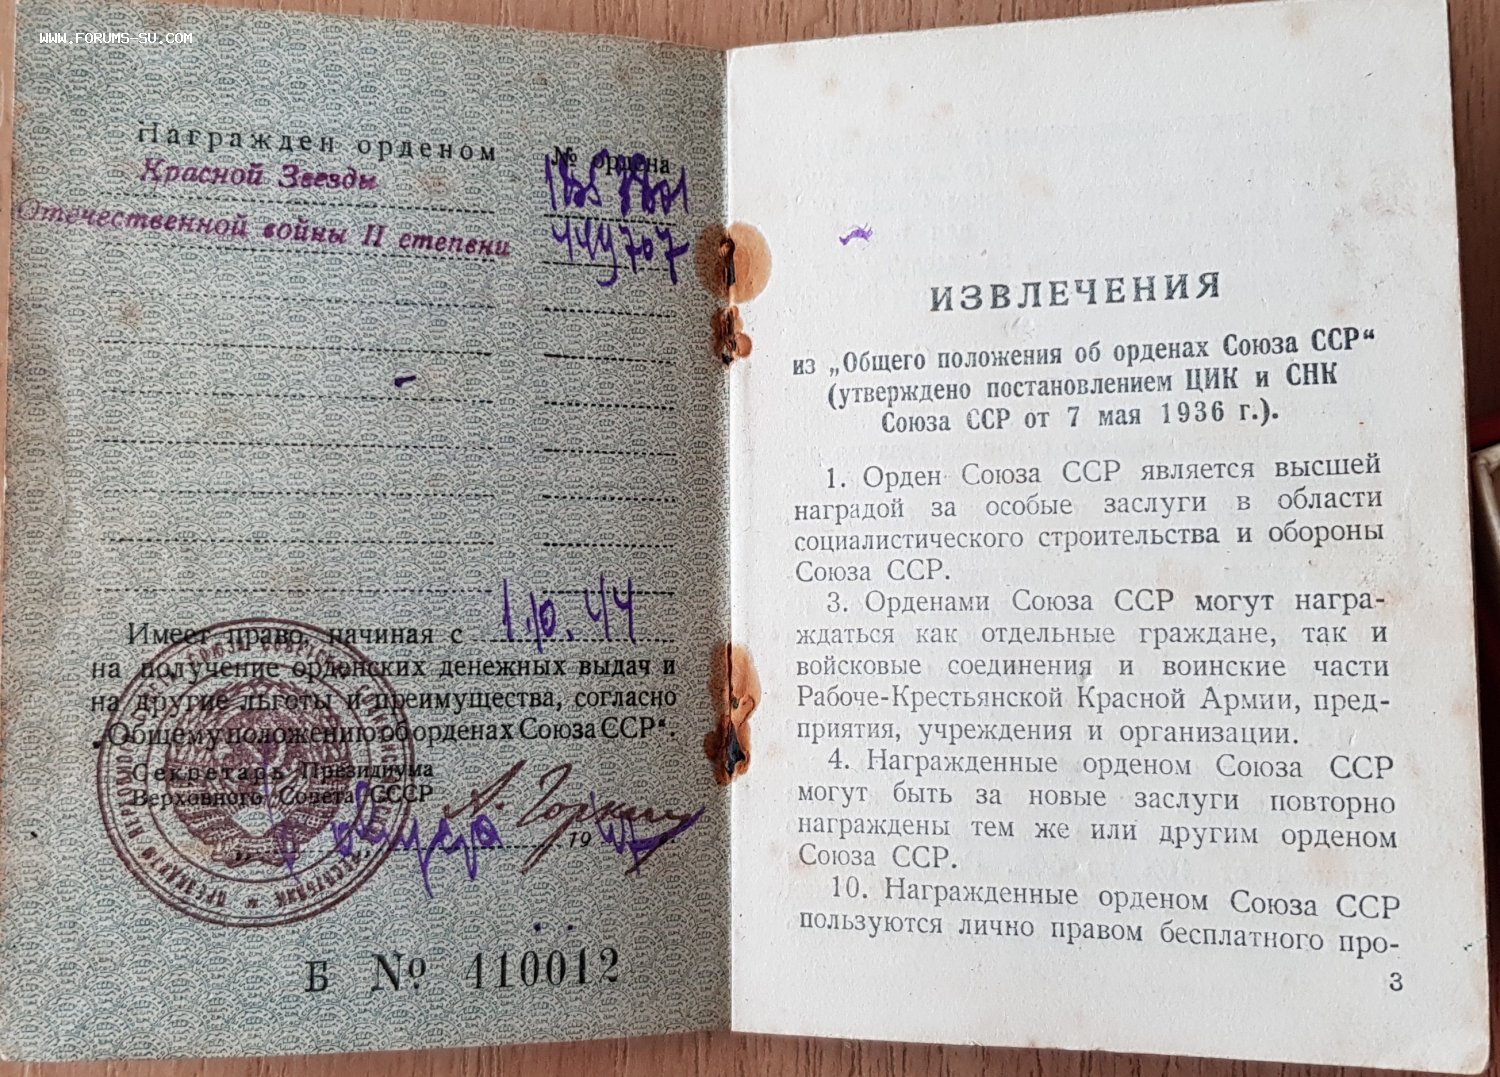 WWW.FORUMS-SU.COM
Награжден орденом
№ ордена
Красной Звезды
Отечественной войны II степени
449707
1.10.44
Имеет право, начиная с
на получение орденских денежных выдач и
на другие льготы и преимущества, согласно
„Общему положению об орденах Союза ССР“.
Секретарь Президиума
Верховного Совета СССР
А. Горкин
19
Б № 410012
ИЗВЛЕЧЕНИЯ
из „Общего положения об орденах Союза ССР“
(утверждено постановлением ЦИК и СНК
Союза ССР от 7 мая 1936 г.).
1. Орден Союза ССР является высшей
наградой за особые заслуги в области
социалистического строительства и обороны
Союза ССР.
3. Орденами Союза ССР могут награ-
ждаться как отдельные граждане, так и
войсковые соединения и воинские части
Рабоче-Крестьянской Красной Армии, пред-
приятия, учреждения и организации.
4. Награжденные орденом Союза ССР
могут быть за новые заслуги повторно
награждены тем же или другим орденом
Союза ССР.
10. Награжденные орденом Союза ССР
пользуются лично правом бесплатного про-
3